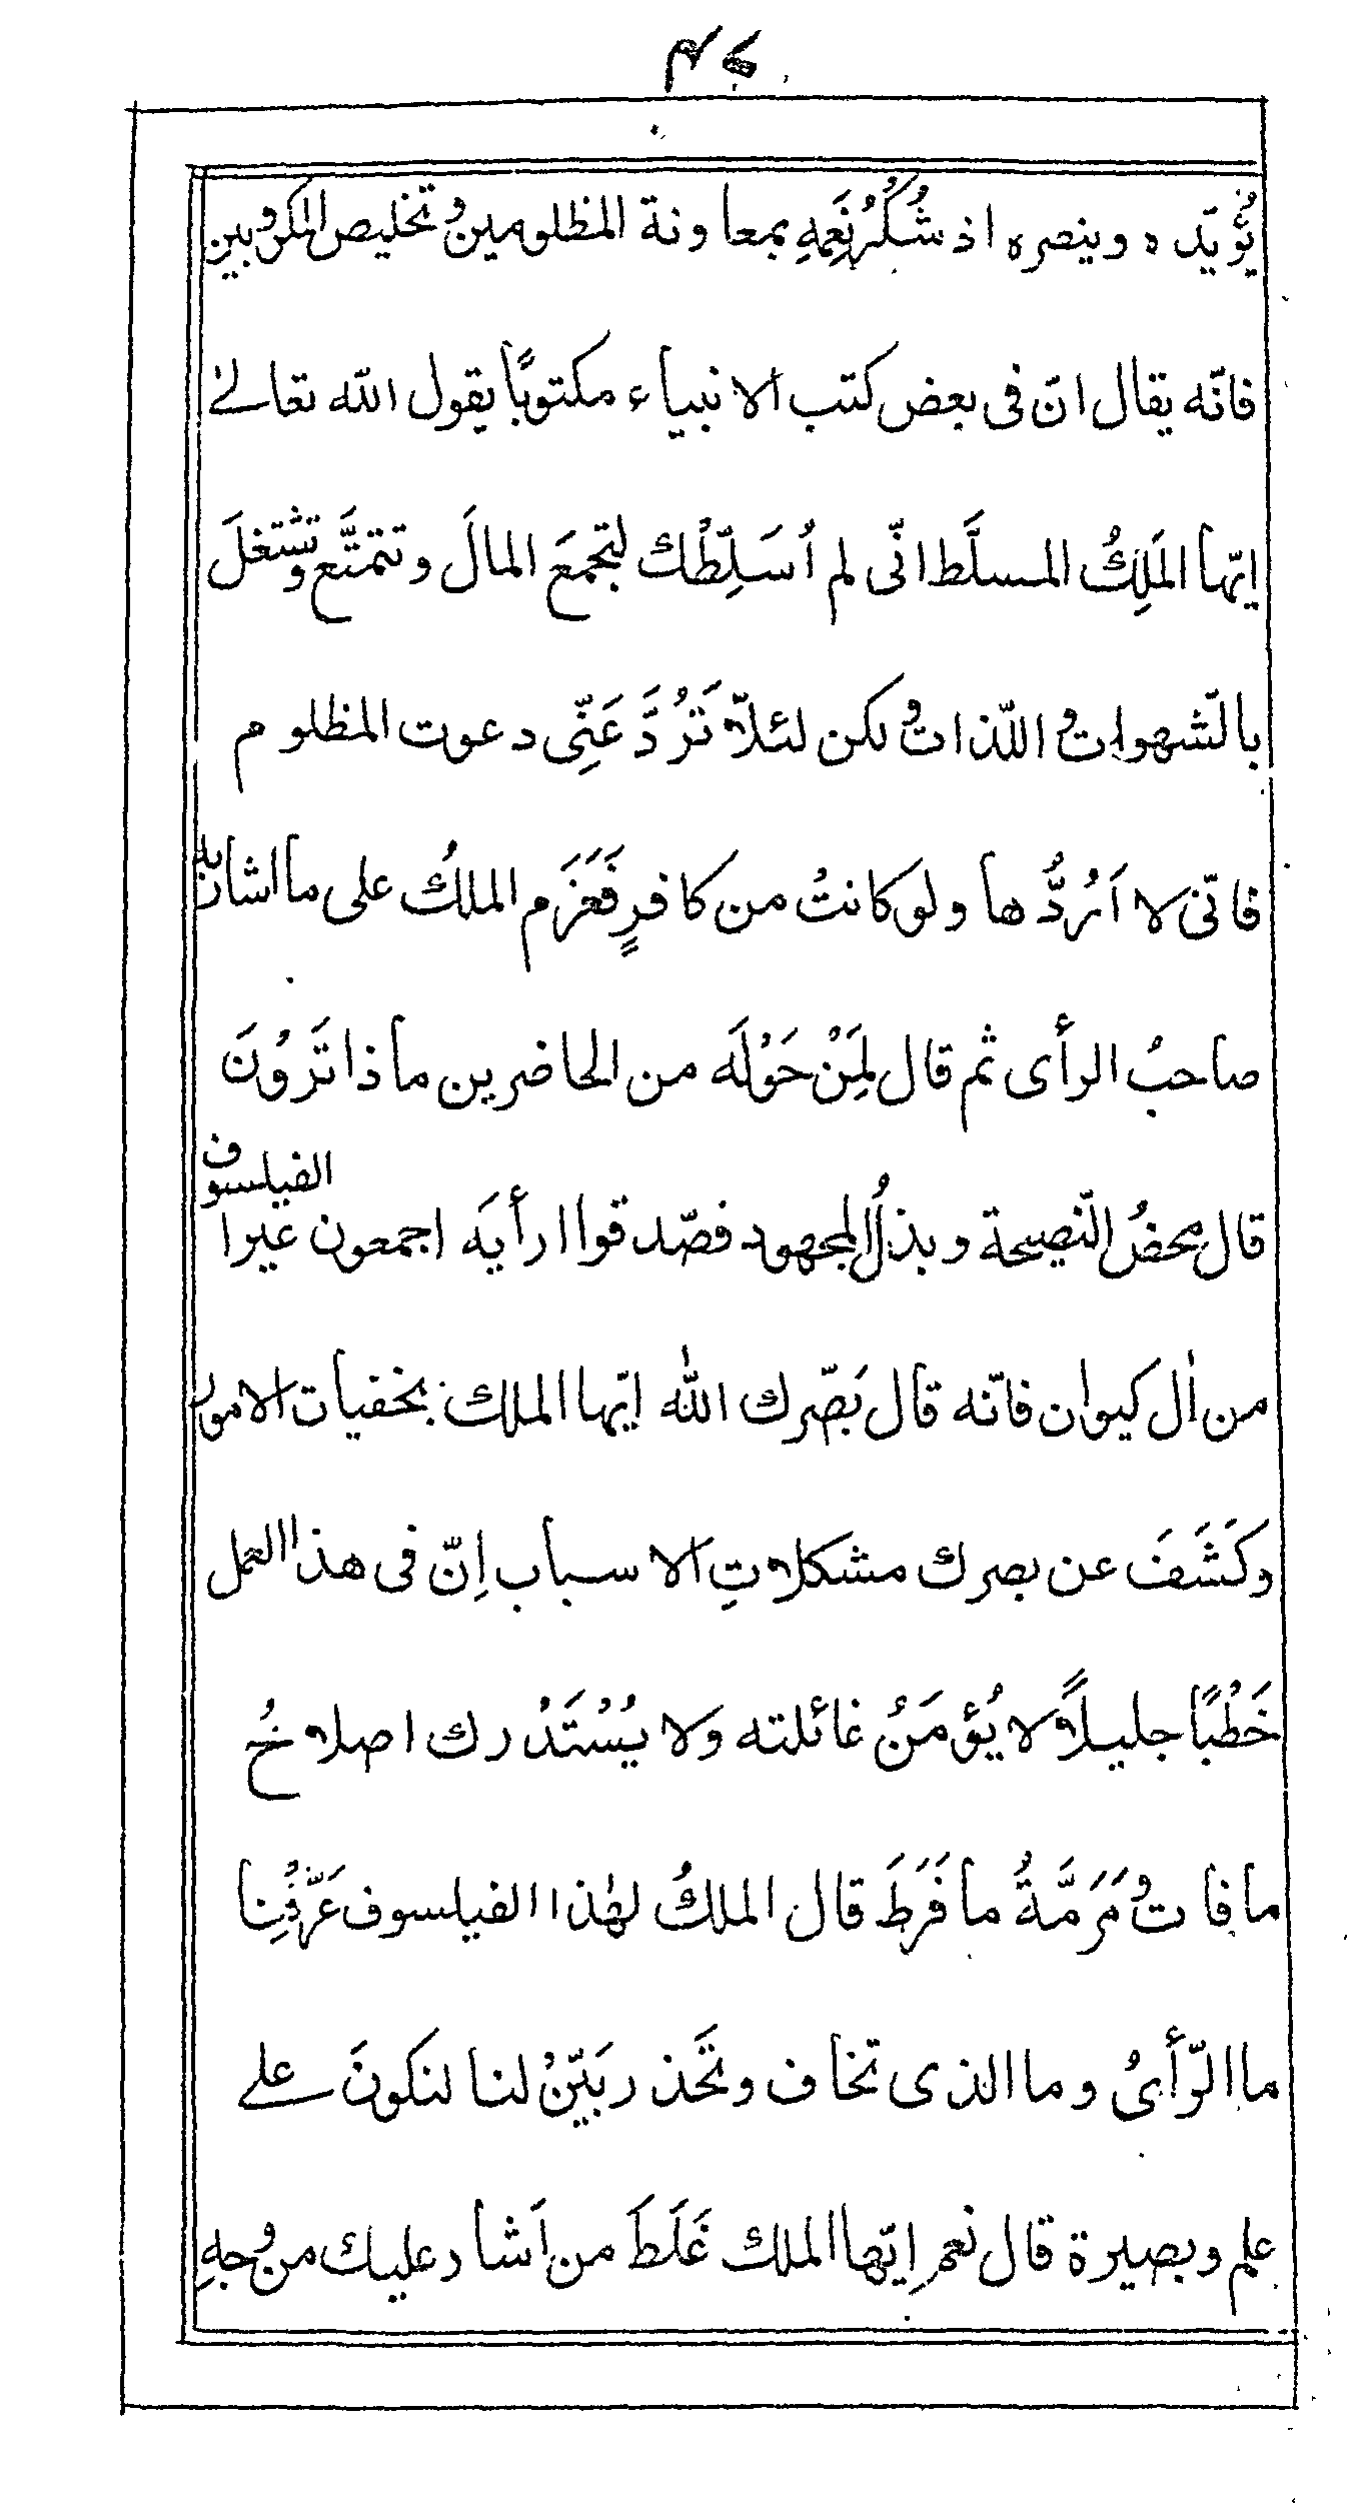 يُؤيّده وينصره اذ شُكْرُ نِعَمِهِ بمعاونة المظلومين و تخليص المكروبين
فانّه يقال انّ فى بعض كتب الانبياء مكتوبًا يقول اللّه تعالىٰ
ايّها المَلِكُ المسلَّط انّى لم اُسَلِّطْك لتجمعَ المالَ و تتمتَّع و تشتغلَ
بالشّهوات و اللّذات و لكن لئلّا تَرُدَّ عَنِّى دعوت المظلوم
فانّى لا اَرُدُّها ولو كانتْ من كافرٍ فَعَزَم الملكُ على ما اشار به
صاحبُ الرأى ثم قال لِمَنْ حَوْلَه من الحاضرين ماذا تَرَوْنَ
قال محضُ النّصيحة و بذلُ المجهود فصّدقوا ارأيَه اجمعون غيرا الفيلسوف
من اٰل كيوان فانّه قال بَصّرك اللّٰه ايّها الملك بخفيات الامور
وكَشَفَ عن بصرك مشكلاتِ الاسباب اِنّ فى هذا العمل
خَطْبًا جليلًا لا يُؤمَنُ غائلته وَلا يُسْتَدْرك اصلاحُ
ما فات و مَرَمَّةُ ما فَرَطَ قال الملكُ لهٰذا الفيلسوف عَرِّفْنا
ما الرّأىُ و ما الذى تخاف و تَحْذر بَيّنْ لنا لنكونَ علے
علم و بصيرة قال نعم اِيّها الملك غَلَطَ من اَشار عليك من وُجهِ